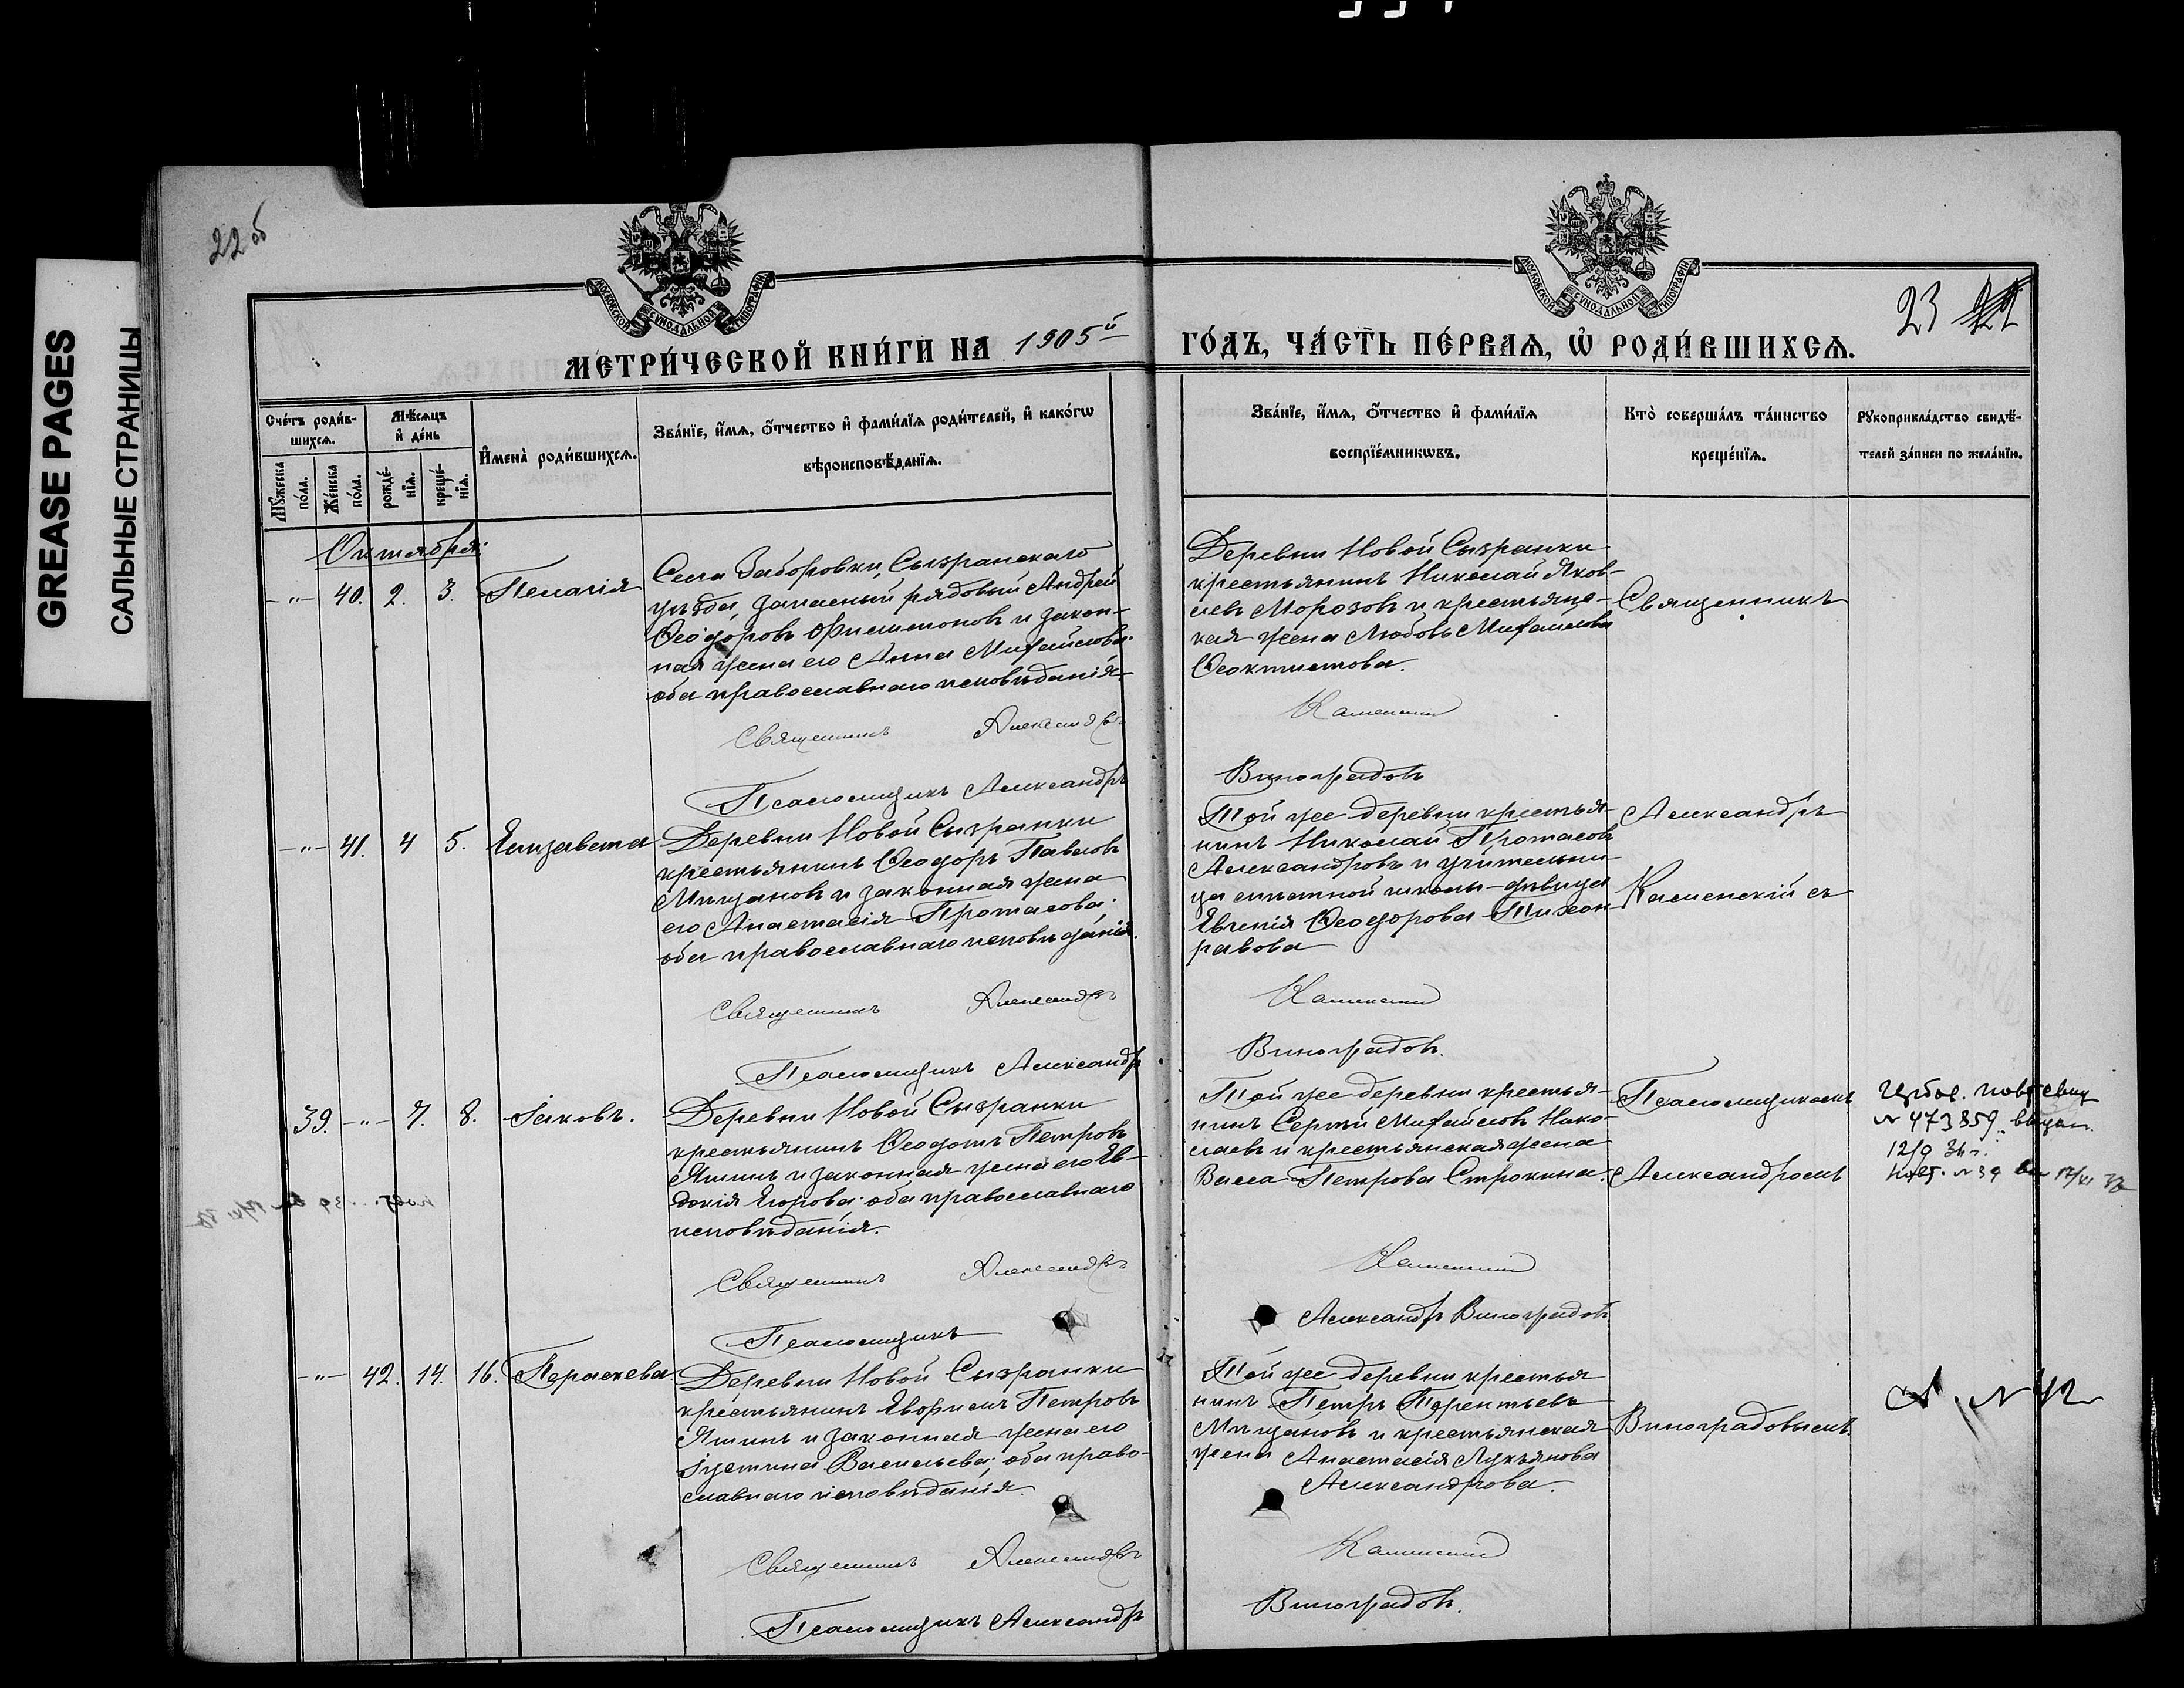 GREASE PAGES
САЛЬНЫЕ СТРАНИЦЫ
22 об
МОСКОВСКОЙ СѴНОДАЛЬНОЙ ТИПОГРАФІИ
МОСКОВСКОЙ СѴНОДАЛЬНОЙ ТИПОГРАФІИ
23
МЕТРИ́ЧЕСКОЙ КНИ́ГИ НА 1905й
ГО́ДЪ, ЧА́СТЬ ПЕ́РВАѦ, Ѡ҆ РОДИ́ВШИХСѦ.
Сче́тъ роди́в-
шихсѧ.
Мꙋ́жеска
по́ла.
Же́нска
по́ла.
Мѣ́сѧцъ
и҆ де́нь
рожде́-
нїѧ.
креще́-
нїѧ.
И҆мена̀ роди́вшихсѧ.
Зва́нїе, и҆́мѧ, ѻ҆́тчество и҆ фами́лїѧ роди́телей, и҆ како́гѡ
вѣроисповѣ́данїѧ.
Зва́нїе, и҆́мѧ, ѻ҆́тчество и҆ фами́лїѧ
воспрїе́мникѡвъ.
Кто̀ соверша́лъ та́инство
креще́нїѧ.
Рꙋкоприкла́дство свидѣ́-
телей за́писи по жела́нїю.
Октября:
-"- 40. 2. 3. Пелагія
Села Заборовки, Сызранскаго
уѣзда, запасный рядовый Андрей
Ѳеодоровъ Филимоновъ и закон-
ная жена его Анна Михайлова;
оба православнаго исповѣданія.
Священникъ Александръ
Псаломщикъ Александръ
Деревни Новой Сызранки
крестьянинъ Николай Яков-
левъ Морозовъ и крестьянс-
кая жена Любовь Михайлова
Ѳеоктистова.
Каменскій
Виноградовъ
Священникъ
-"- 41. 4 5. Елизавета
Деревни Новой Сызранки
крестьянинъ Ѳеодоръ Павловъ
Мѣщановъ и законная жена
его Анастасія Протасова;
оба православнаго исповѣданія.
Священникъ Александръ
Псаломщикъ Александръ
Той же деревни крестья-
нинъ Николай Протасовъ
Александровъ и учительни-
ца мѣстной школы - дѣвица
Евгенія Ѳеодорова Тихон
равова
Каменскій
Виноградовъ.
Александръ
Каменскій съ
39. -"- 7. 8. Іаковъ.
Деревни Новой Сызранки
крестьянинъ Ѳеодотъ Петровъ
Яшинъ и законная жена его Ев-
докія Егорова; оба православнаго
исповѣданія.
Священникъ Александръ
Псаломщикъ
Той же деревни крестья-
нинъ Сергѣй Михайловъ Нико-
лаевъ и крестьянская жена
Васса Петрова Строкина.
Каменскій
Александръ Виноградовъ
Псаломщикомъ
Александромъ
№ 473859
-"- 42. 14. 16. Параскева
Деревни Новой Сызранки
крестьянинъ Евфимъ Петровъ
Яшинъ и законная жена его
Іустина Васильева; оба право-
славнаго исповѣданія.
Священникъ Александръ
Псаломщикъ Александръ
Той же деревни крестья
нинъ Петръ Терентьевъ
Мѣщановъ и крестьянская
жена Анастасія Лукьянова
Александрова.
Каменскій
Виноградовъ.
Виноградовымъ.
№ 42